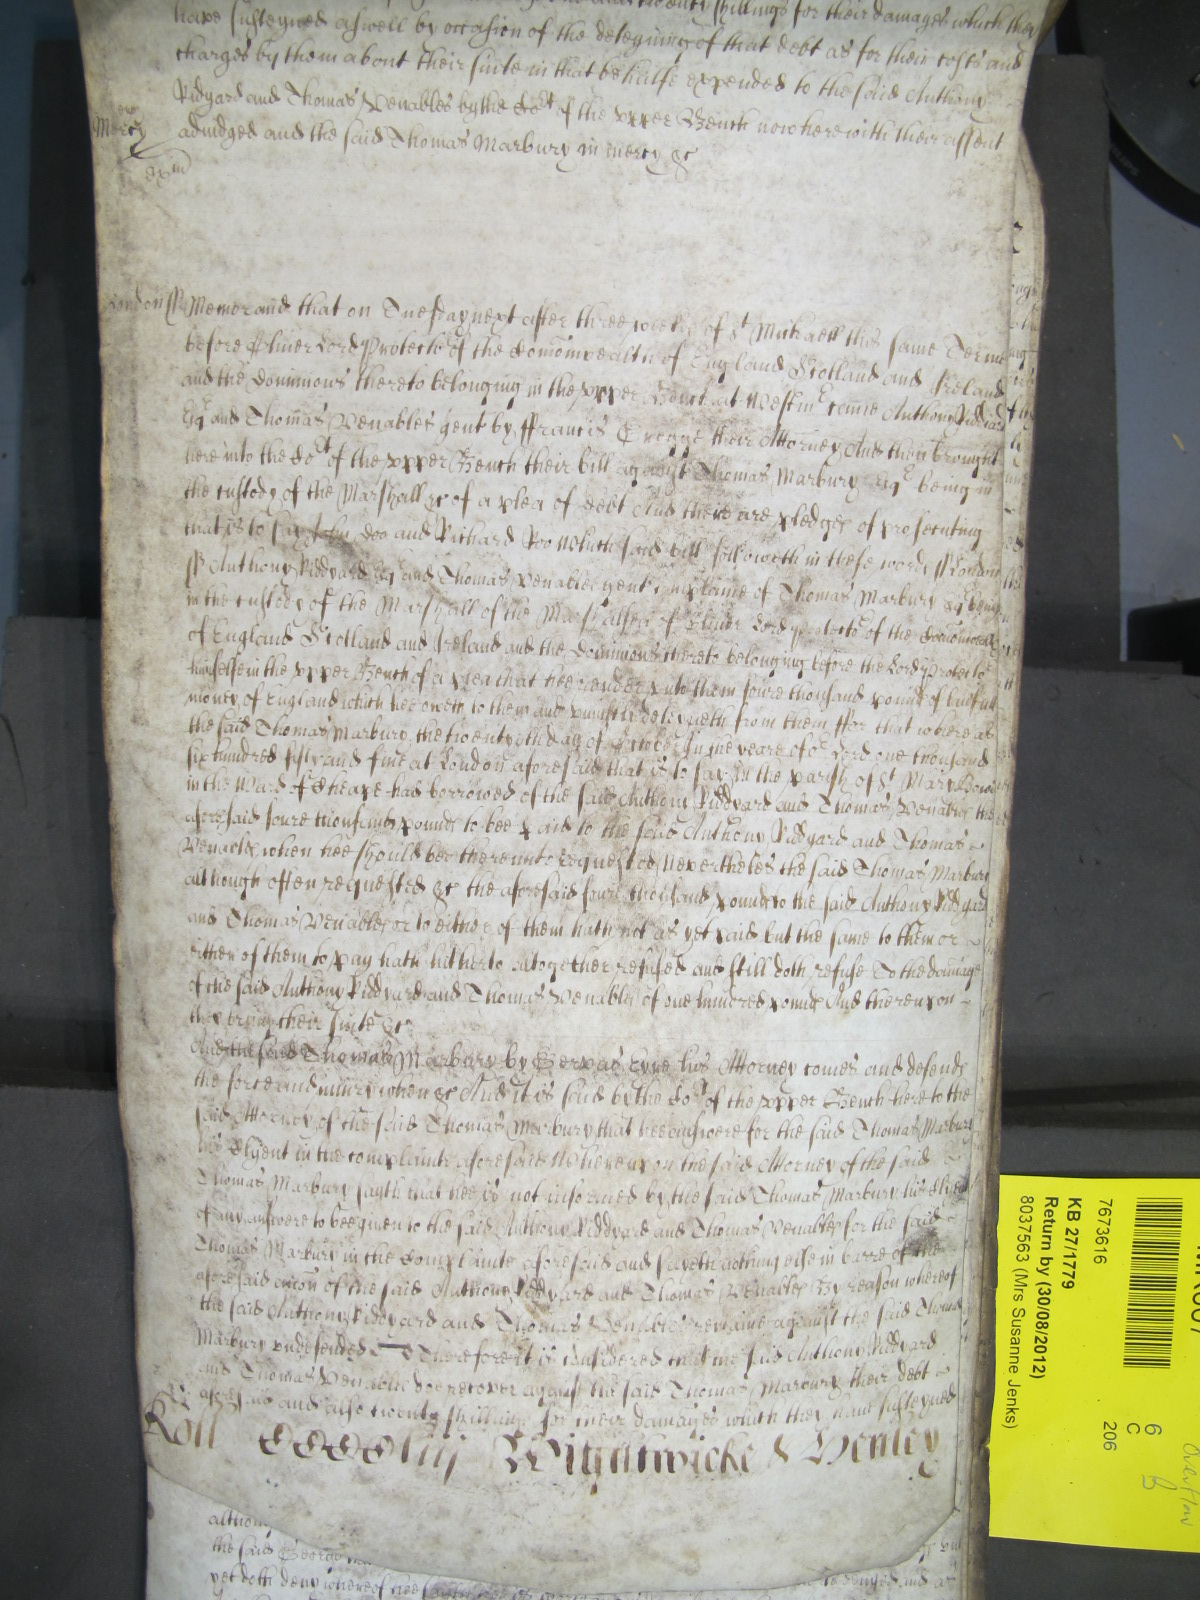 have susteyned aswell by occasion of the deteyning of that debt as for their costs and
charges by them about their suite in that behalfe expended to the said Anthony
Ridgard and Thomas Venables by the Cort of the upper Bench now here with their assent
Mercy adiudged and the said Thomas Marbury in mercy &c
London ss Memorand that on Tuesday next after three weekes of St Michaell this same Terme
before Oliver Lord Protector of the Comonwealth of England Scotland and Ireland
and the Dominions thereto belonging in the upper Bench at Westmr came Anthony
Esqr and Thomas Venables gent by ffrancis Gregge their Attorney And then brought
here into the Cort of the upper Bench their bill against Thomas Marbury Esqr being in
the custody of the Marshall &c of a plea of debt And there are pledges of prosecuting
that is to say John Doo and Richard Roo Which said bill followeth in these words ss London
ss Anthony Ridyard Esqr and Thomas Venables gent complaine of Thomas Marbury Esqr being
in the custody of the Marshall of the Marshalsea of Oliver Lord protector of the Comonwealth
of England Scotland and Ireland and the Dominions thereto belonging before the Lord Protector
himselfe in the upper Bench of a plea that hee render unto them foure thousand pounds of lawfull
money of England which hee oweth to them and uniustly deteyneth from them ffor that whereas
the said Thomas Marbury the twentyeth day of October In the yeare of or Lord one thousand
six hundred fifty and five at London aforesaid that is to say in the parish of St Mary Bowe
in the Ward of Cheape had borrowed of the said Anthony Ridyard and Thomas Venables the
aforesaid foure thousand pounds to bee paid to the said Anthony Ridyard and Thomas
Venables when hee should bee thereunto requested Neverthelesse the said Thomas Marbury
although often requested &c the aforesaid foure thousand pounds to the said Anthony Ridyard
and Thomas Venables or to either of them hath not as yet paid but the same to them or
either of them to pay hath hitherto altogether refused and still doth refuse To the damage
of the said Anthony Ridyard and Thomas Venables of one hundred pounds And thereupon
they bring their suite &c
And the said Thomas Marbury by Gervas his Attorney comes and defends
the force and iniury when &c And it is said by the Cort of the upper Bench here to the
said Attorney of the said Thomas Marbury that hee answere for the said Thomas Marbury
his Clyent in the complainte aforesaid Whereupon the said Attorney of the said
Thomas Marbury sayth that hee is not informed by the said Thomas Marbury his Clyent
of any answere to bee given to the said Anthony Ridyard and Thomas Venables for the said
Thomas Marbury in the Complainte aforesaid and sayeth nothing else in barre of the
aforesaid accon of the said Anthony Ridyard and Thomas Venables By reason whereof
the said Anthony Ridyard and Thomas Venables remaine against the said Thomas
Marbury undefended Therefore it is considered that the said Anthony Ridyard
and Thomas Venables doe recover against the said Thomas Marbury their debt
aforesaid and also twenty shillings for their damages which they have susteyned
Roll CCCCliij Wightwicke & Henley
althoug
the said George
yet doth deny whereof hee
7673616
KB 27/1779
Return by (30/08/2012)
8037563 (Mrs Susanne Jenks)
6
C
206
Overflow
B